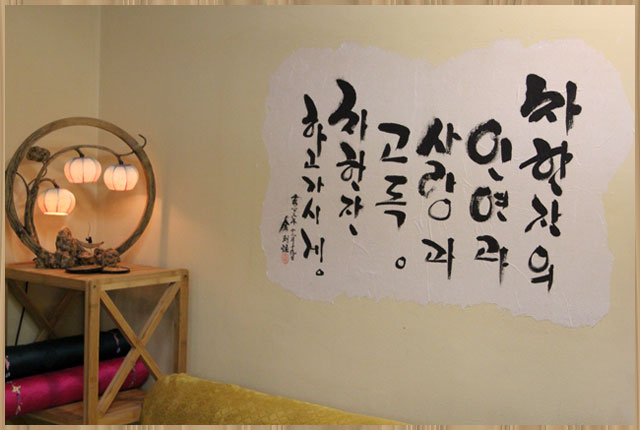 차한잔의
인연과
사랑과
고독。
차한잔
하고가시게。